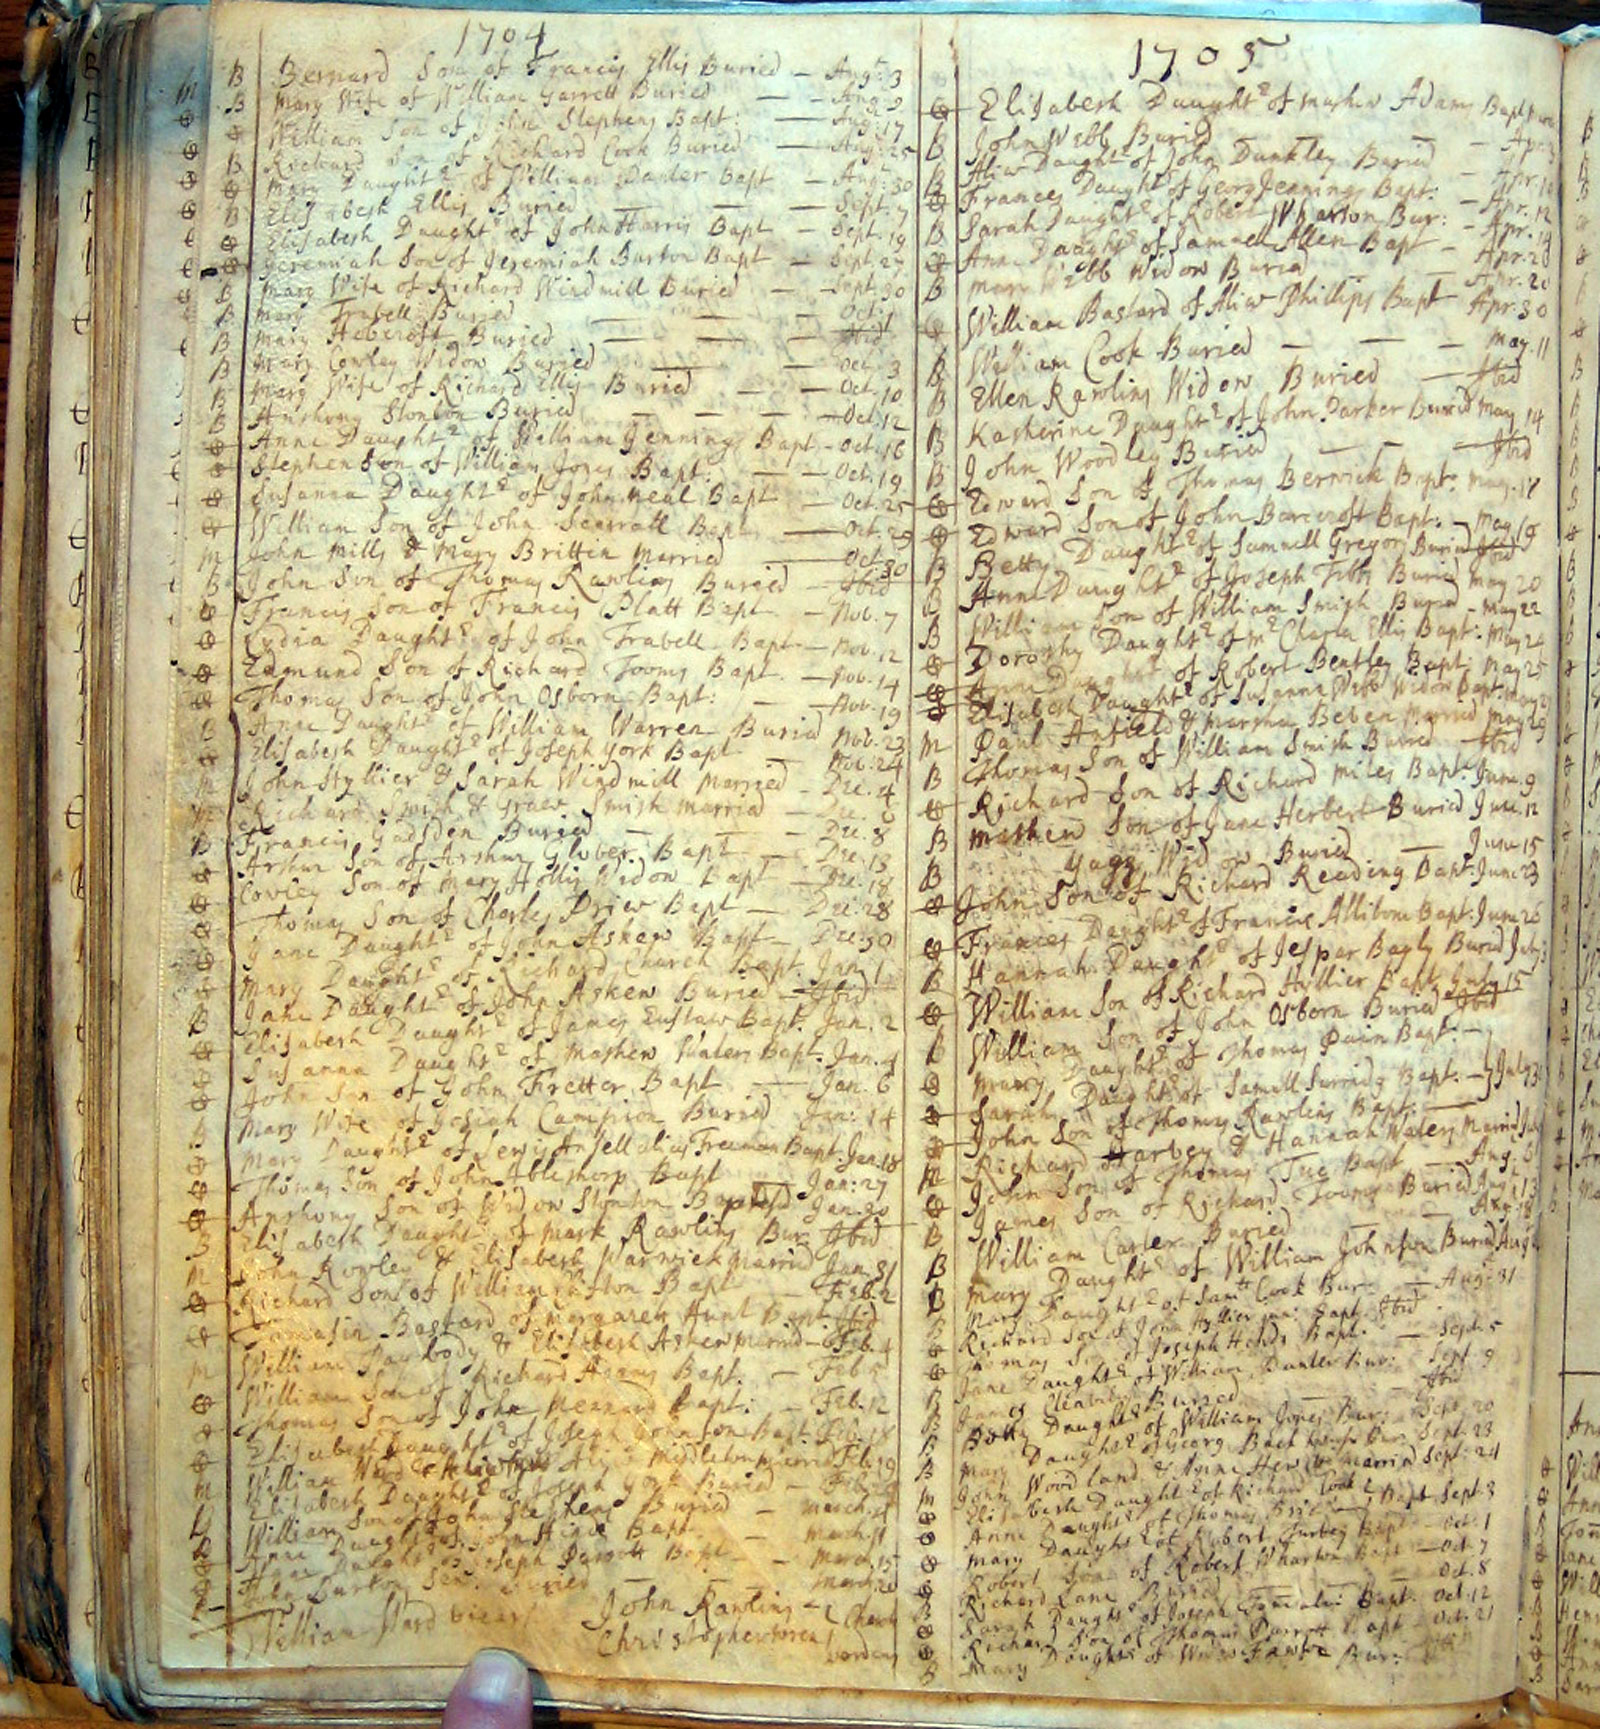 1704
B Bernard Son of Francis Ellis Buried - Augt. 3
B Mary Wife of William Garrett Buried - - Aug. 9
William Son of John Stephens Bapt: - Aug. 17
B Richard Son of Richard Cook Buried - Aug: 25
Mary Daught.r of William Danter Bapt - Aug: 30
B Elisabeth Ellis Buried - - - Sept. 7
Elisabeth Daught.r of John Harris Bapt - Sept. 19
Jeremiah Son of Jeremiah Burton Bapt - Sept. 27
B Mary Wife of Richard Windmill Buried - Sept. 30
B Mary Trabell Buried - - - Oct. 1
B Mary Hebcroft Buried - - - Ibid
B Mary Cowley Widow Buried - - Oct. 3
B Mary Wife of Richard Ellis Buried - - Oct. 10
B Anthony Stonton Buried - - - Oct. 12
Anne Daught.r of William Jennings Bapt - Oct. 16
Stephen Son of William Jones Bapt: - Oct. 19
Susanna Daught.r of John Neal Bapt - Oct. 25
William Son of John Scarratt Bapt - Oct. 29
M John Mills & Mary Brittin Married - Oct. 30
B John Son of Thomas Rawlins Buried - Ibid
Francis Son of Francis Platt Bapt - Nov. 7
Lydia Daught.r of John Trabell Bapt - Nov. 12
Edmund Son of Richard Tooms Bapt - Nov. 14
Thomas Son of John Osborn Bapt: - Nov. 19
B Anne Daught.r of William Warren Buried Nov. 23
Elisabeth Daught.r of Joseph York Bapt - Nov. 24
M John Hyllier & Sarah Windmill Married - Dec. 4
M Richard Smith & Grace Smith Married - Dec. 6
B Francis Gadsden Buried - - Dec. 8
Arthur Son of Arthur Glover Bapt - Dec. 13
Cowley Son of Mary Hollis Widow Bapt - Dec. 18
Thomas Son of Charles Price Bapt - Dec. 28
Jane Daught.r of John Askew Bapt - Dec. 30
Mary Daught.r of Richard Church Bapt. Jan. 1
B Jane Daught.r of John Askew Buried - Ibid
Elisabeth Daught.r of James Eustace Bapt. Jan. 2
Susanna Daught.r of Mathew Waters Bapt. Jan. 4
John Son of John Fretter Bapt - Jan. 6
B Mary Wife of Josiah Campion Buried Jan: 14
Mary Daught.r of Lewis Ansell alias Freeman Bapt. Jan. 18
Thomas Son of John Ablethorp Bapt - Jan: 27
Anthony Son of Widow Stonton Baptisd Jan. 30
B Elisabeth Daught.r of Mark Rawlins Bur. Ibid
M John Rowley & Elisabeth Warwick Married Jan. 31
Richard Son of William Bapt - Feb. 2
Tamasin Bastard of Margarett Hunt Bapt. Ibid
M William Paybody & Elisabeth Askew Married - Feb. 4
William Son of Richard Adams Bapt. - Feb
Thomas Son of John Bapt: - Feb. 12
Elisabeth Daught.r of Joseph Johnson Bapt. Feb. 18
M William Ward & Alice Middleton Married Feb. 19
Elisabeth Daught.r of Joseph York Buried - Feb.
William Son of John Stephens Buried - March.
Anne Daught.r of John Bapt - March. 11
Anne Daught.r of Joseph Parrott Bapt - March. 15
John Burton Sen.r Buried - March. 20
William Ward Vicar John Rawlins Church
Christopher wardens
1705
Elisabeth Daught.r of Mathew Adams Bapt
B John Webb Buried - Apr.
B Alice Daught.r of John Dunkley Buried - Apr. 10
Frances Daught.r of Georg Jennings Bapt: - Apr. 12
B Sarah Daught.r of Robert Wharton Bur: - Apr. 14
Anne Daught.r of Samuell Allen Bapt - Apr. 20
B Mary Webb Widow Buried - Apr. 20
William Bastard of Alice Phillips Bapt Apr. 30
B William Cook Buried - - - May. 11
B Ellen Rawlins Widow Buried - Ibid
B Katherine Daught.r of John Parker Buried May 14
B John Woodley Buried - - Ibid
Edward Son of Thomas Berwick Bapt: May. 17
Edward Son of John Barcroft Bapt: - May 19
B Betty Daught.r of Samuell Gregory Buried Ibid
B Anne Daught.r of Joseph Tibbs Buried May 20
B William Son of William Smith Buried - May 22
Dorothy Daught.r of Mr Charls Ellis Bapt: May 24
Anne Daught.r of Robert Bentley Bapt: May 25
Elisabeth Daught.r of Susanna Webb Widow Bapt: May 2
M Paul Anfield & Martha Beben Married May 29
B Thomas Son of William Smith Buried - Ibid
Richard Son of Richard Miles Bapt. June. 9
B Mathew Son of Jane Herbert Buried June. 12
B Yagg Widow Buried - June 15
John Son of Richard Reading Bapt. June 23
Frances Daught.r of Francis Allibone Bapt. June 26
B Hannah Daught.r of Jesper Bagly Buried July
William Son of Richard Hyllier Bapt. July 15
B William Son of John Osborn Buried Ibid
Mary Daught.r of Thomas Pain Bapt. -
Sarah Daught.r of Samuell Surridg Bapt. - July 3
John Son of Thomas Rawlins Bapt: -
M Richard Harbey & Hannah Waters Married July
John Son of Thomas Tue Bapt - Aug. 6
B James Son of Richard Tooms Buried Aug. 13
B William Carter Buried - Aug. 18
B Mary Daught.r of William Johnson Buried Aug
B Mary Daught.r of Sam.ll Cook Bur. - Aug: 31
Richard Son of John Hyllier Bapt. Ibid
Thomas Son of Joseph Bapt. - Sept. 5
B Jane Daught.r of William Danter Bur: Sept. 9
B James Buried - - Ibid
B Betty Daught.r of William Jones Bur: Sept. 20
B Mary Daught.r of Georg Bur. Sept. 23
M John Woodland & Anne Married Sept. 24
Elisabeth Daught.r of Richard Cook Bapt Sept. 3
Anne Daught.r of Thomas Bapt - Oct. 1
Mary Daught.r of Robert Bapt - Oct. 7
Robert Son of Robert Wharton Bapt - Oct. 8
B Richard Lane Buried - Oct. 12
Sarah Daught.r of Joseph Bapt. Oct. 21
Richard Son of Thomas Parrott Bapt
B Mary Daught.r of Widow Bur: